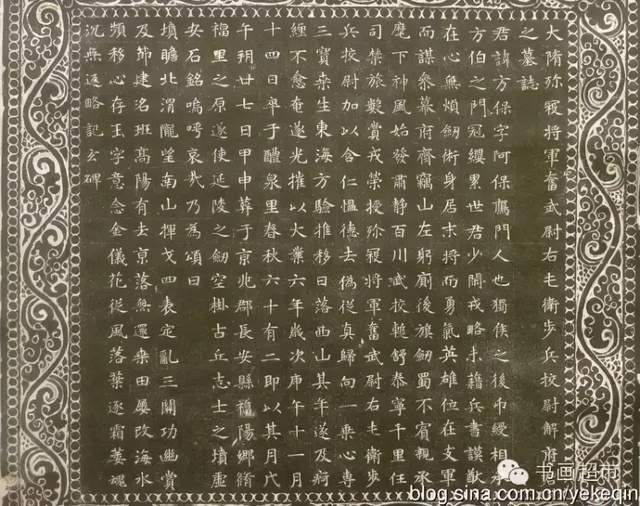 大隋殄寇將軍奮武尉右屯衛步兵校尉解府君
之墓誌
君諱方保字阿保鴈門人也獨俟之後印綬相承
方伯之門冠纓累世君少閑戎略未藉兵書謨猷
在心無煩劒術身居末將而勇氣英雄位在文軍
而謀參幕府齊竊山左躬廁後旅劒蜀不賓親承
麾下神風始發肅靜百川武校恭寧千里任
司禁旅數賞戎榮授殄寇將軍奮武尉右屯衛步
兵校尉加以含仁愠德去偽從真歸向一乘心專
三寶桒生東海方驗推移日落西山其年遂及痾
纏不愈奄遂光摧以大業六年歲次庚午十一月
十四日卒于醴泉里春秋六十有二即以其月戊
午朔廿七日甲申葬于京兆郡長安縣福陽鄉脩
福里之原遂使延陵之劒空掛古丘志士之墳虛
安石銘嗚呼哀哉乃為頌曰
墳瞻北渭隴望南山揮戈四表定亂三關功幽賞
及節建名班高陽有去京落無還桒田屢改海水
頻移心存王字意念金儀花從風落葉逐霜萎魂
沉無返略記玄碑
书画超市
blog.sina.com.cn/yekeqin